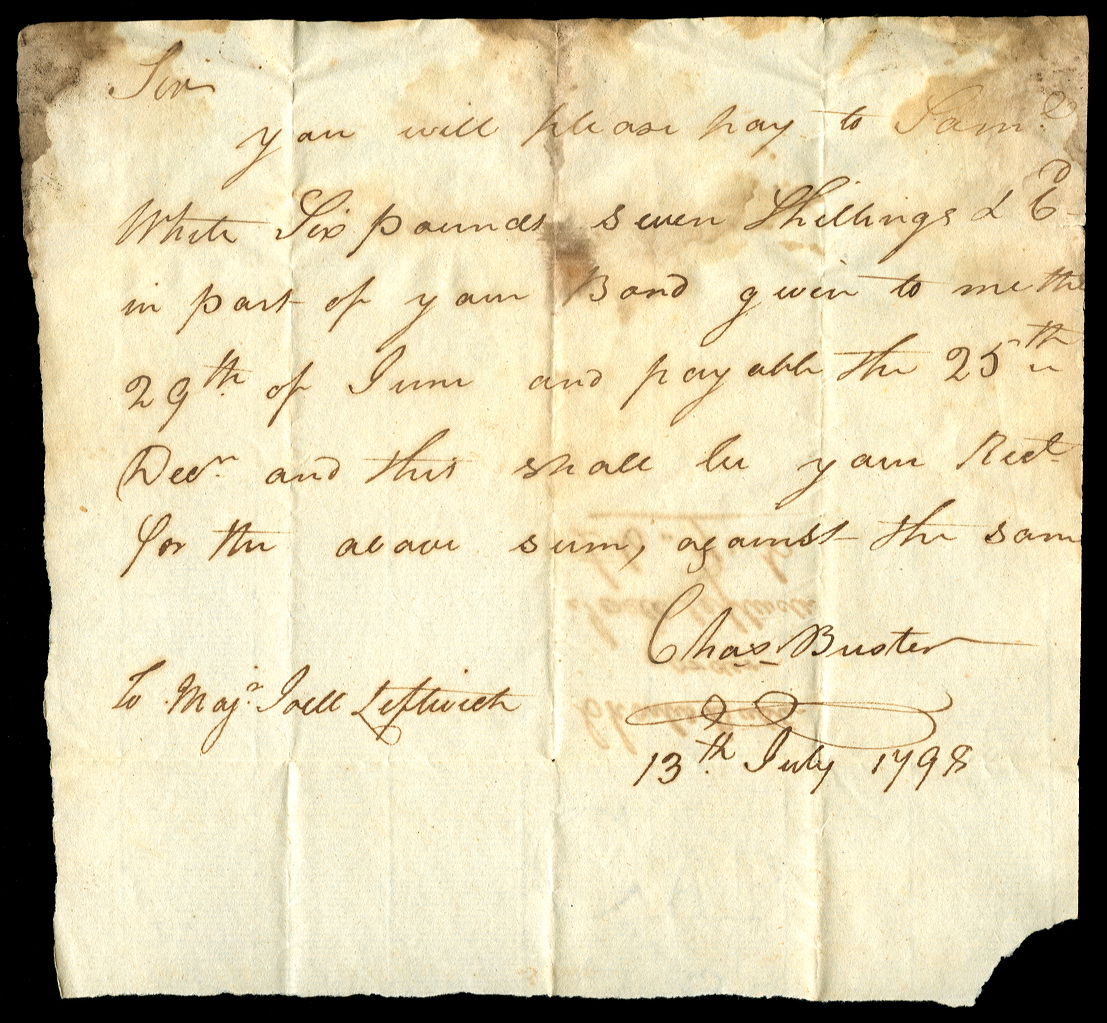 Sir
you will please pay to Sam.l
White Six pounds seven Shillings & 6d
in part of your Bond given to me the
29th. of June and payable the 25th
Decr. and this shall be your Rect.
for the above sum, against the same
Chas Buster
To Majr. Joell Leftwich
13th. July 1798